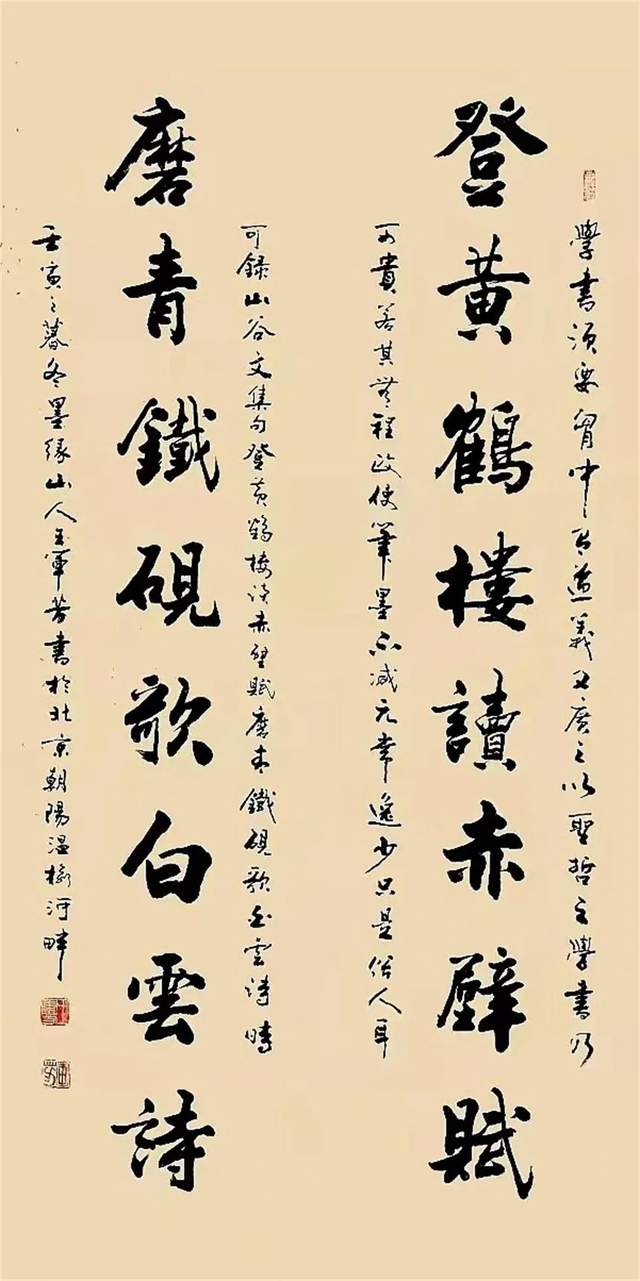 學書須要胷中有道義又廣之以聖哲之學書乃
登黄鶴樓讀赤壁賦
可貴若其無程政使筆墨不減元常逸少只是俗人耳
可録山谷文集句登黄鶴樓讀赤壁賦磨青鐵硯歌白雲詩時
磨青鐵硯歌白雲詩
壬寅之暮冬墨緣山人王軍芳書於北京朝陽温榆河畔